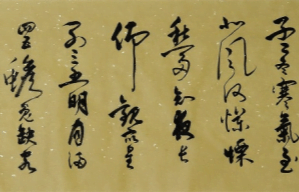 孟冬寒氣至
北風何慘慄
愁多知夜長
仰觀眾星
列三五明月滿
四五蟾兔缺客